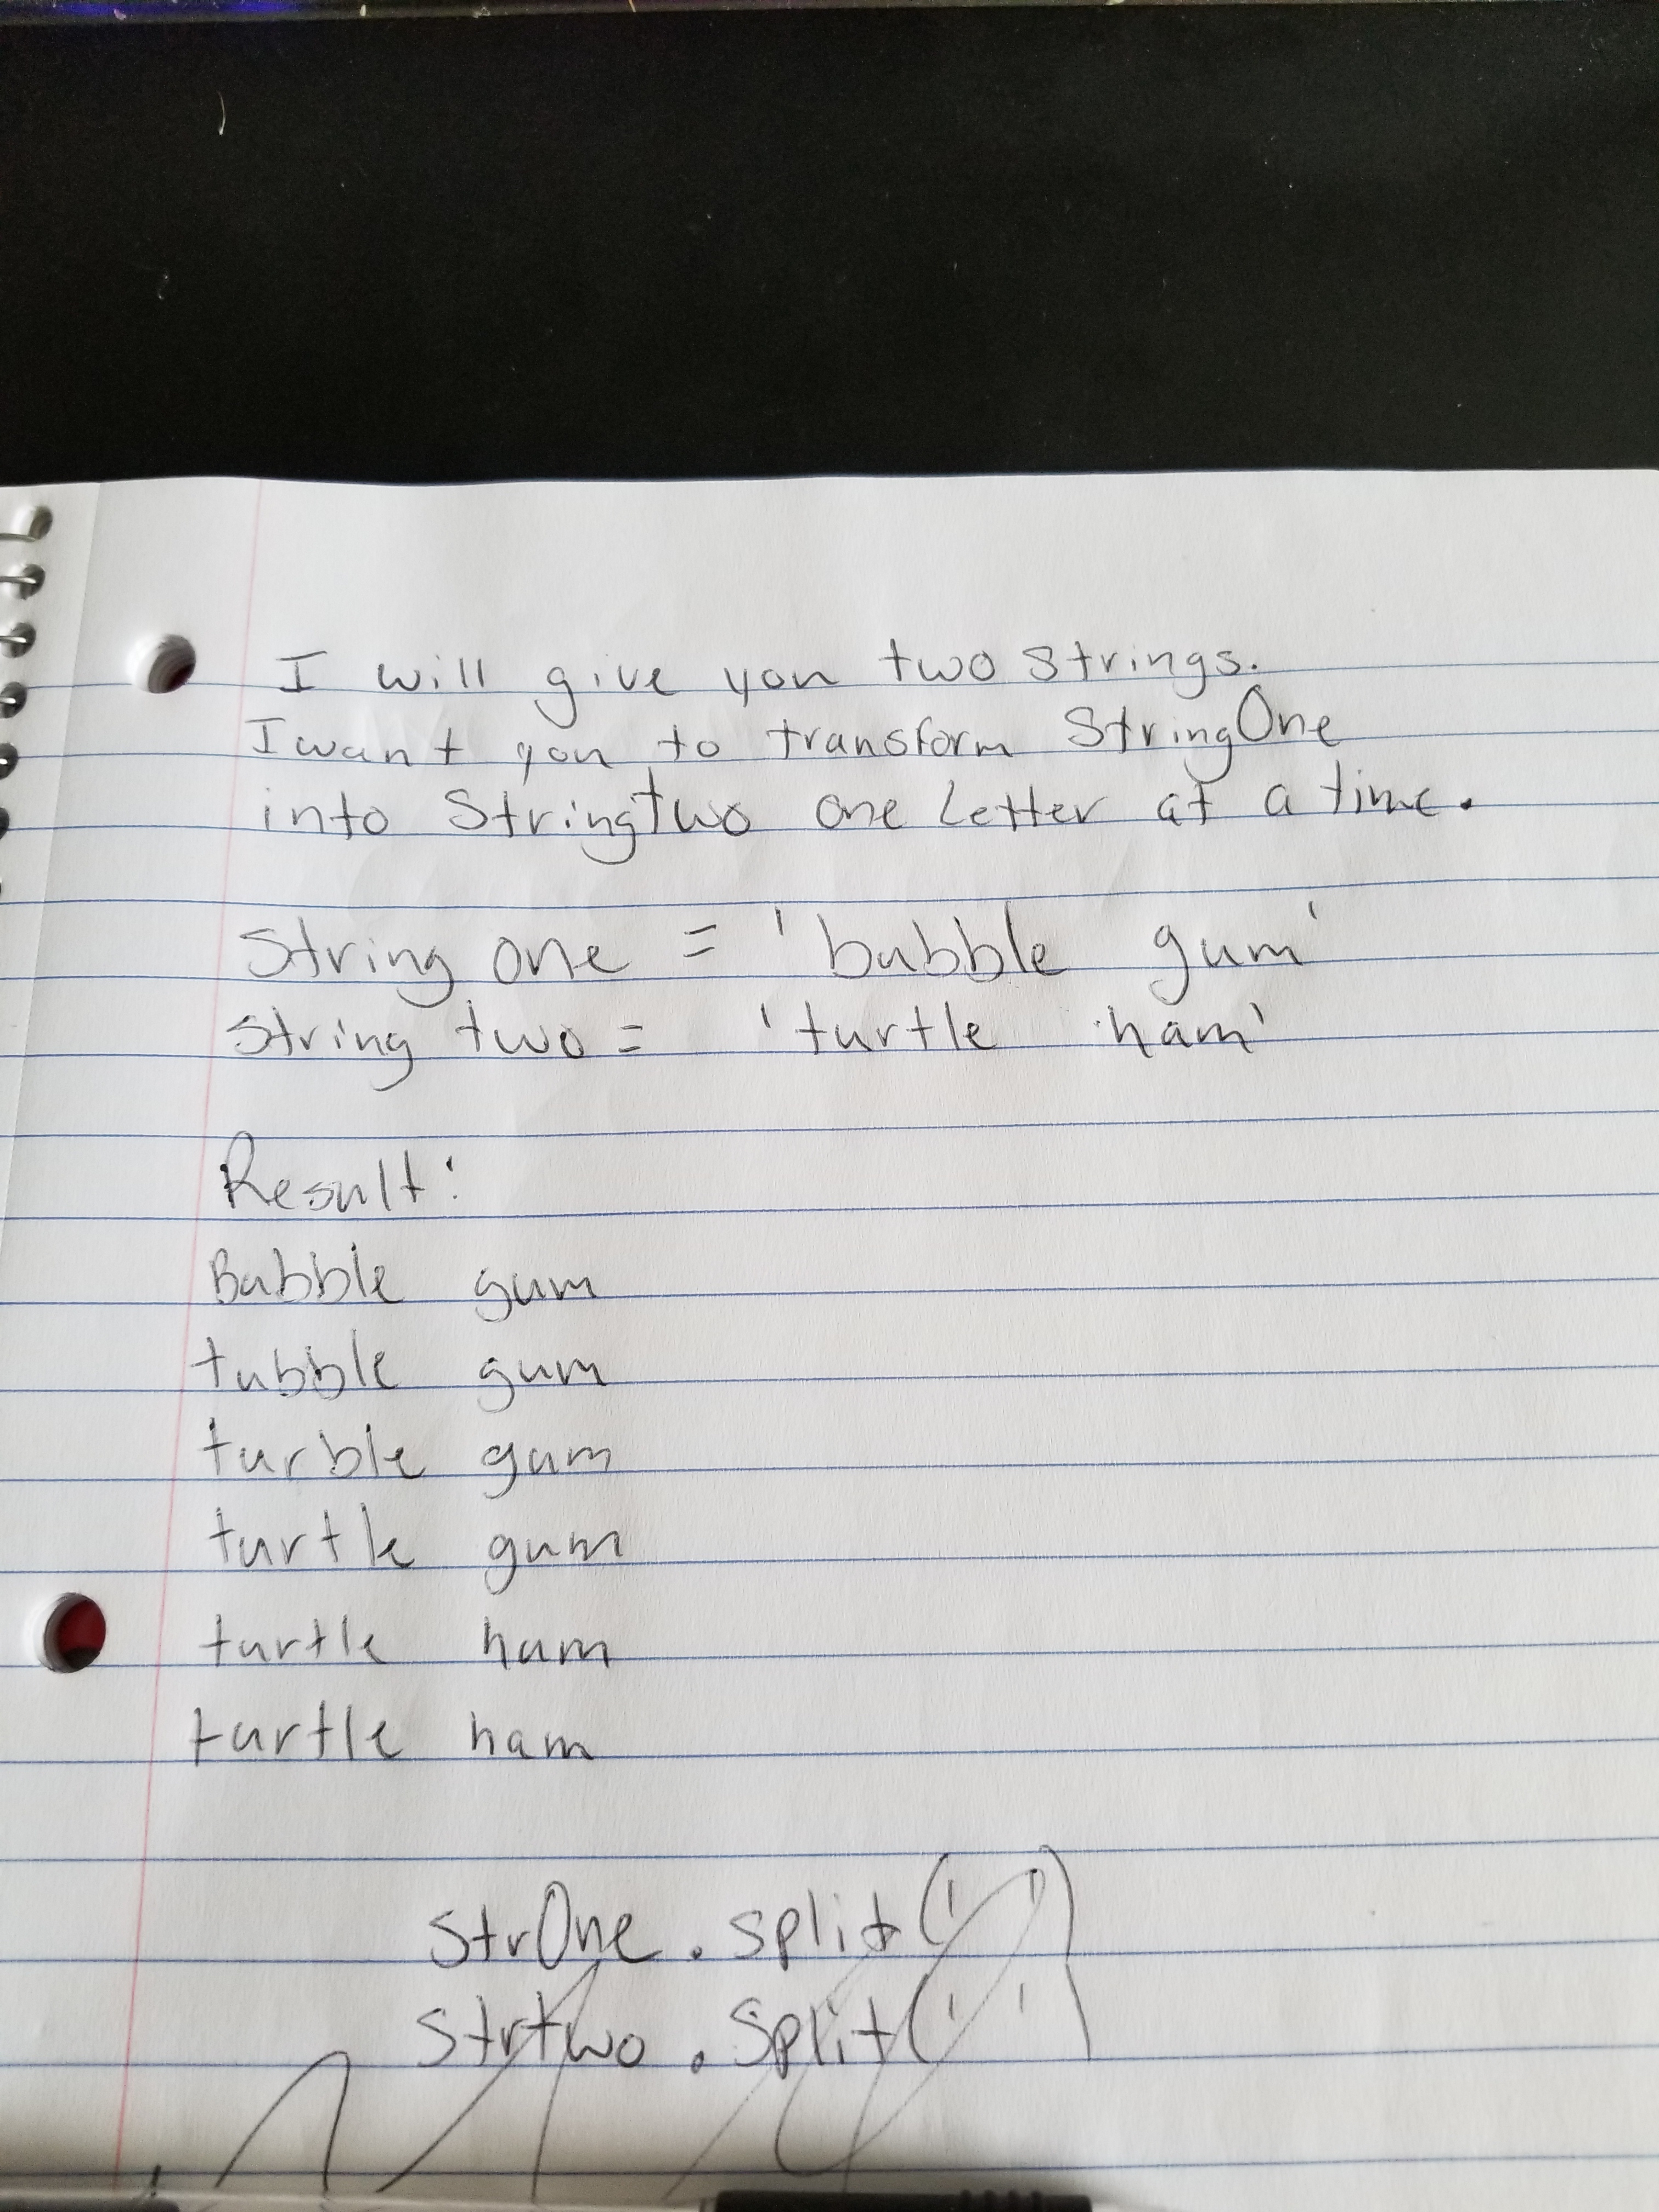 I will give you two strings.
I want you to transform StringOne
into Stringtwo one Letter at a time.
String one = 'bubble gum'
String two = 'turtle ham'
Result:
Bubble gum
tubble gum
turble gum
turtle gum
turtle hum
turtle ham
StrOne.split(' ')
Strtwo.Split(' ')